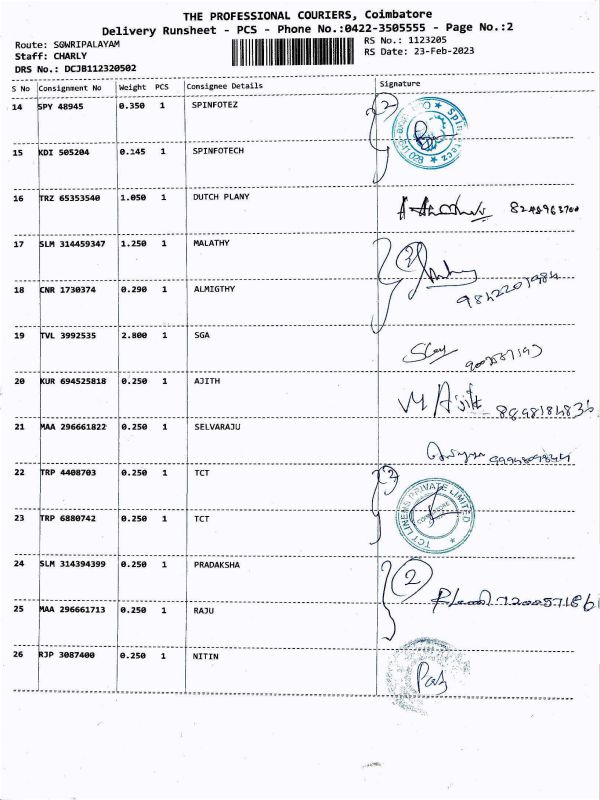 THE PROFESSIONAL COURIERS, Coimbatore
Delivery Runsheet - PCS - Phone No.:0422-3505555 - Page No.:2
Route: SOWRIPALAYAM
RS No.: 1123205
Staff: CHARLY
RS Date: 23-Feb-2023
DRS No.: DCJB112320502
S No Consignment No Weight PCS Consignee Details Signature
14 SPY 48945 0.350 1 SPINFOTEZ 2
15 KDI 505204 0.145 1 SPINFOTECH
16 TRZ 65353540 1.050 1 DUTCH PLANY
17 SLM 314459347 1.250 1 MALATHY 2
18 CNR 1730374 0.290 1 ALMIGTHY 9842201984
19 TVL 3992535 2.800 1 SGA
20 KUR 694525818 0.250 1 AJITH M Ajith
21 MAA 296661822 0.250 1 SELVARAJU
22 TRP 4408703 0.250 1 TCT 2
TCT LINENS PRIVATE LIMITED
23 TRP 6880742 0.250 1 TCT
24 SLM 314394399 0.250 1 PRADAKSHA 2
25 MAA 296661713 0.250 1 RAJU
26 RJP 3087400 0.250 1 NITIN